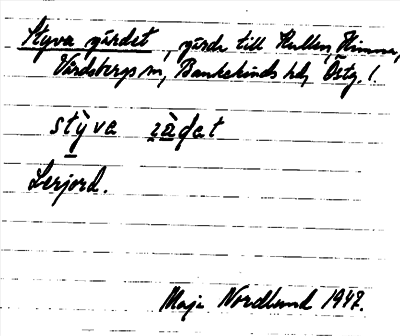 Styva gärdet, gärde till Hullen, Himna,
Vårdsbergs sn, Bankekinds hd, Östg. l.
stỳva jä̀ḍat
Lerjord.
Maja Nordlund 1942.